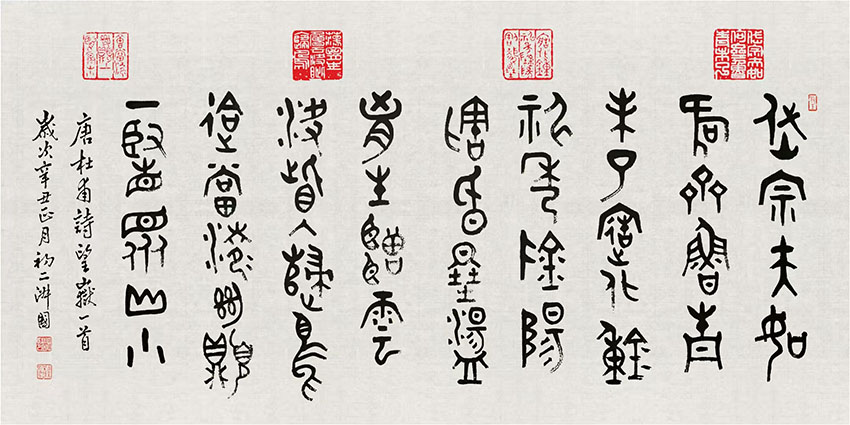 岱宗夫如
何齊魯青
未了造化鍾
神秀陰陽
割昏曉盪
胸生曾雲
決眥入歸鳥
會當凌絕頂
一覽眾山小
唐杜甫詩望嶽一首
歲次辛丑正月初二國